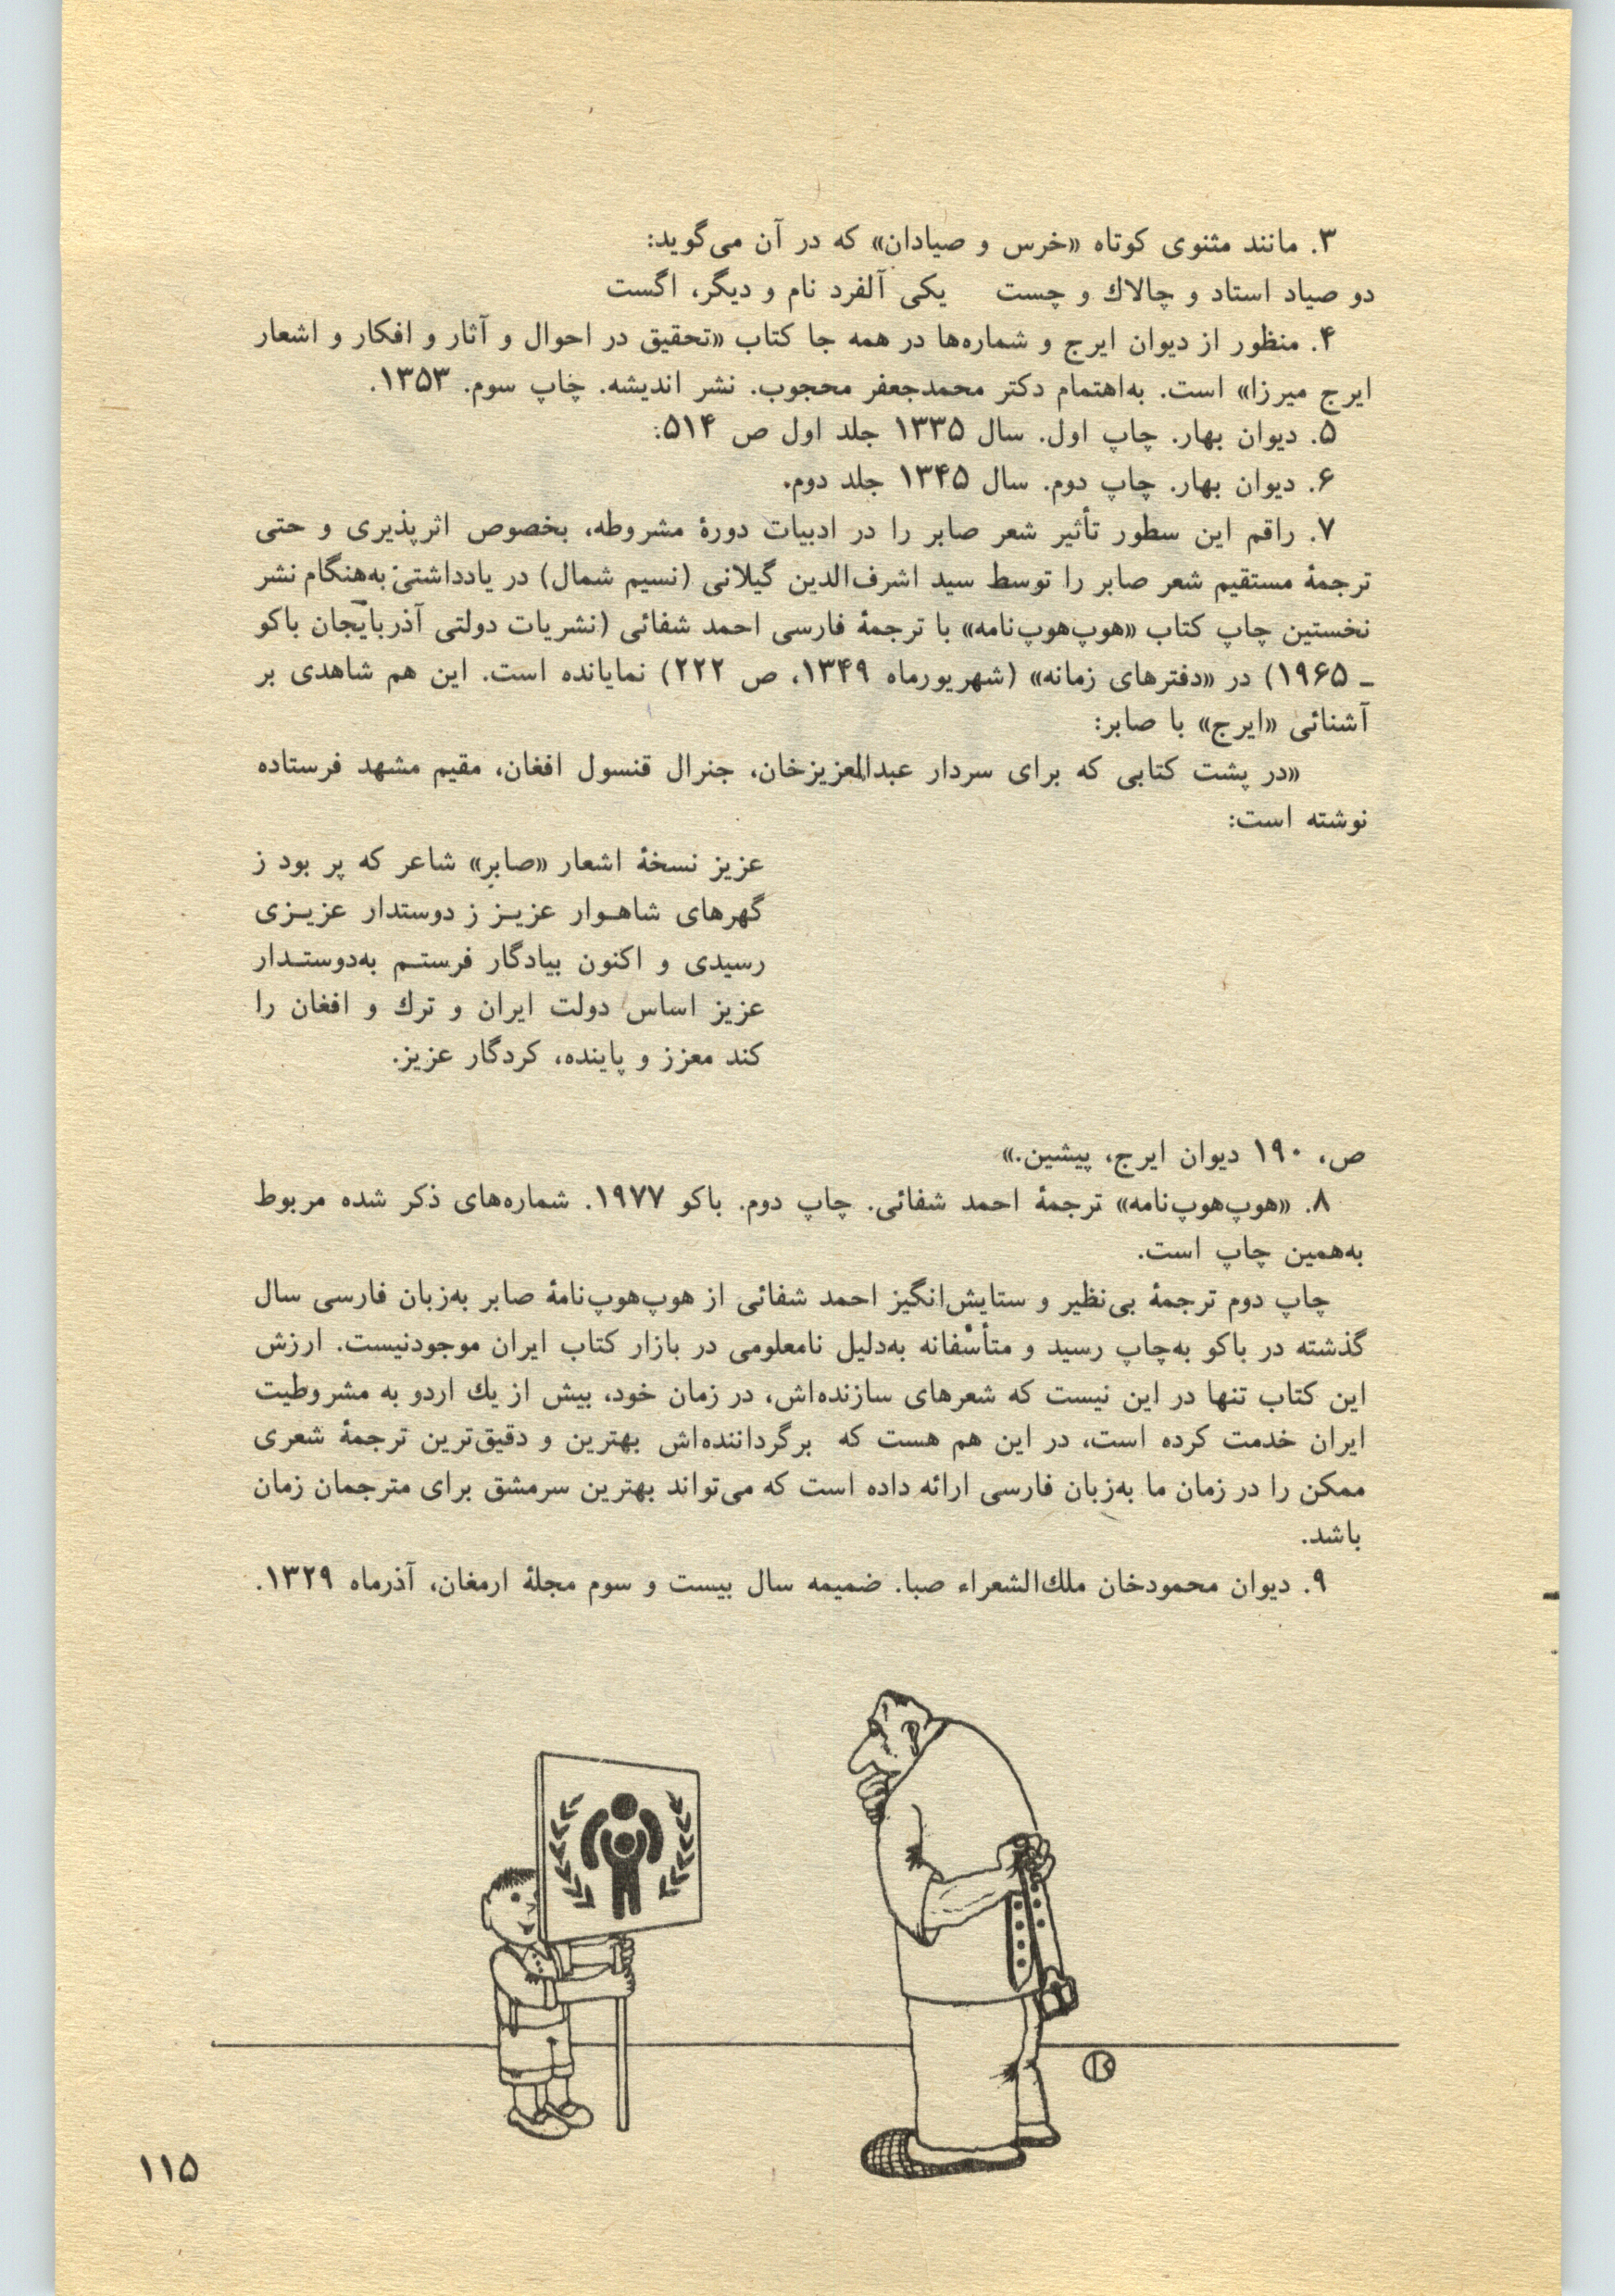 ۳. مانند مثنوی کوتاه «خرس و صیادان» که در آن می‌گوید:
دو صیاد استاد و چالاك و چست یکی آلفرد نام و دیگر، اگست
۴. منظور از دیوان ایرج و شماره‌ها در همه جا کتاب «تحقیق در احوال و آثار و افکار و اشعار
ایرج میرزا» است. به‌اهتمام دکتر محمدجعفر محجوب. نشر اندیشه. چاپ سوم. ۱۳۵۳.
۵. دیوان بهار. چاپ اول. سال ۱۳۳۵ جلد اول ص ۵۱۴:
۶. دیوان بهار. چاپ دوم. سال ۱۳۴۵ جلد دوم.
۷. راقم این سطور تأثیر شعر صابر را در ادبیات دورهٔ مشروطه، بخصوص اثرپذیری و حتی
ترجمهٔ مستقیم شعر صابر را توسط سید اشرف‌الدین گیلانی (نسیم شمال) در یادداشتی به‌هنگام نشر
نخستین چاپ کتاب «هوپ‌هوپ‌نامه» با ترجمهٔ فارسی احمد شفائی (نشریات دولتی آذربایجان باکو
ـ ۱۹۶۵) در «دفترهای زمانه» (شهریورماه ۱۳۴۹، ص ۲۲۲) نمایانده است. این هم شاهدی بر
آشنائی «ایرج» با صابر:
«در پشت کتابی که برای سردار عبدالعزیزخان، جنرال قنسول افغان، مقیم مشهد فرستاده
نوشته است:
عزیز نسخهٔ اشعار «صابر» شاعر که پر بود ز
گهرهای شاهـوار عزیـز ز دوستدار عزیـزی
رسیدی و اکنون بیادگار فرستـم به‌دوستـدار
عزیز اساس دولت ایران و ترك و افغان را
کند معزز و پاینده، کردگار عزیز.
ص، ۱۹۰ دیوان ایرج، پیشین.»
۸. «هوپ‌هوپ‌نامه» ترجمهٔ احمد شفائی. چاپ دوم. باکو ۱۹۷۷. شماره‌های ذکر شده مربوط
به‌همین چاپ است.
چاپ دوم ترجمهٔ بی‌نظیر و ستایش‌انگیز احمد شفائی از هوپ‌هوپ‌نامهٔ صابر به‌زبان فارسی سال
گذشته در باکو به‌چاپ رسید و متأسفانه به‌دلیل نامعلومی در بازار کتاب ایران موجودنیست. ارزش
این کتاب تنها در این نیست که شعرهای سازنده‌اش، در زمان خود، بیش از یك اردو به مشروطیت
ایران خدمت کرده است، در این هم هست که برگرداننده‌اش بهترین و دقیق‌ترین ترجمهٔ شعری
ممکن را در زمان ما به‌زبان فارسی ارائه داده است که می‌تواند بهترین سرمشق برای مترجمان زمان
باشد.
۹. دیوان محمودخان ملك‌الشعراء صبا. ضمیمه سال بیست و سوم مجلهٔ ارمغان، آذرماه ۱۳۲۹.
۱۱۵